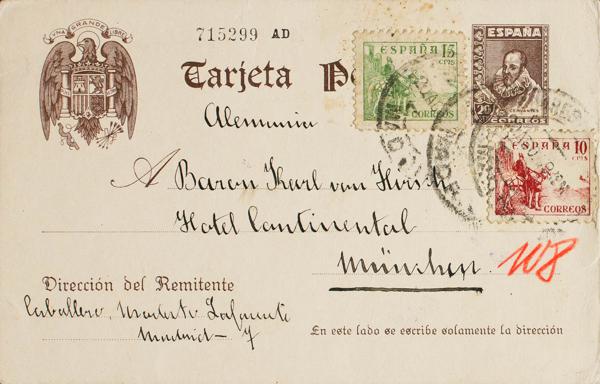 UNA GRANDE LIBRE
715299 AD
Tarjeta
ESPAÑA 15 CTMS
CORREOS
ESPAÑA
CORREOS
Alemania
ESPAÑA 10 CTMS
CORREOS
A Baron Karl von
Hotel Continental
München
108
Dirección del Remitente
Caballero,
Madrid - 7
En este lado se escribe solamente la dirección